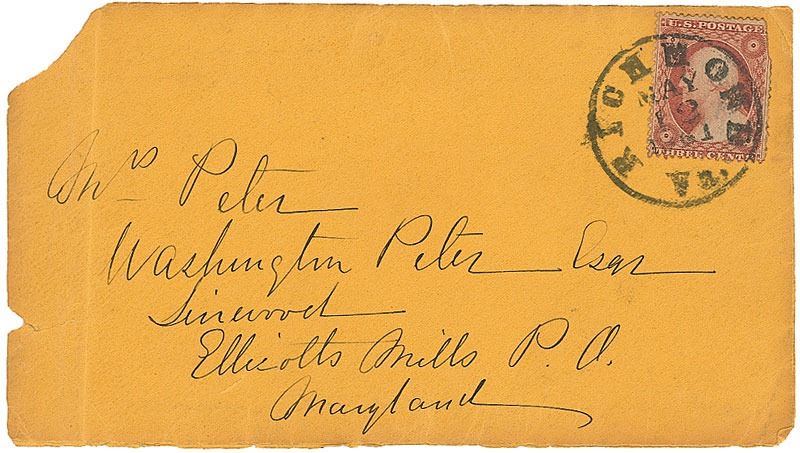 U.S. POSTAGE
THREE CENTS
RICHMOND VA.
MAY
12
Mrs Peter
Washington Peter Esqr
Linwood
Ellicotts Mills P. O.
Maryland